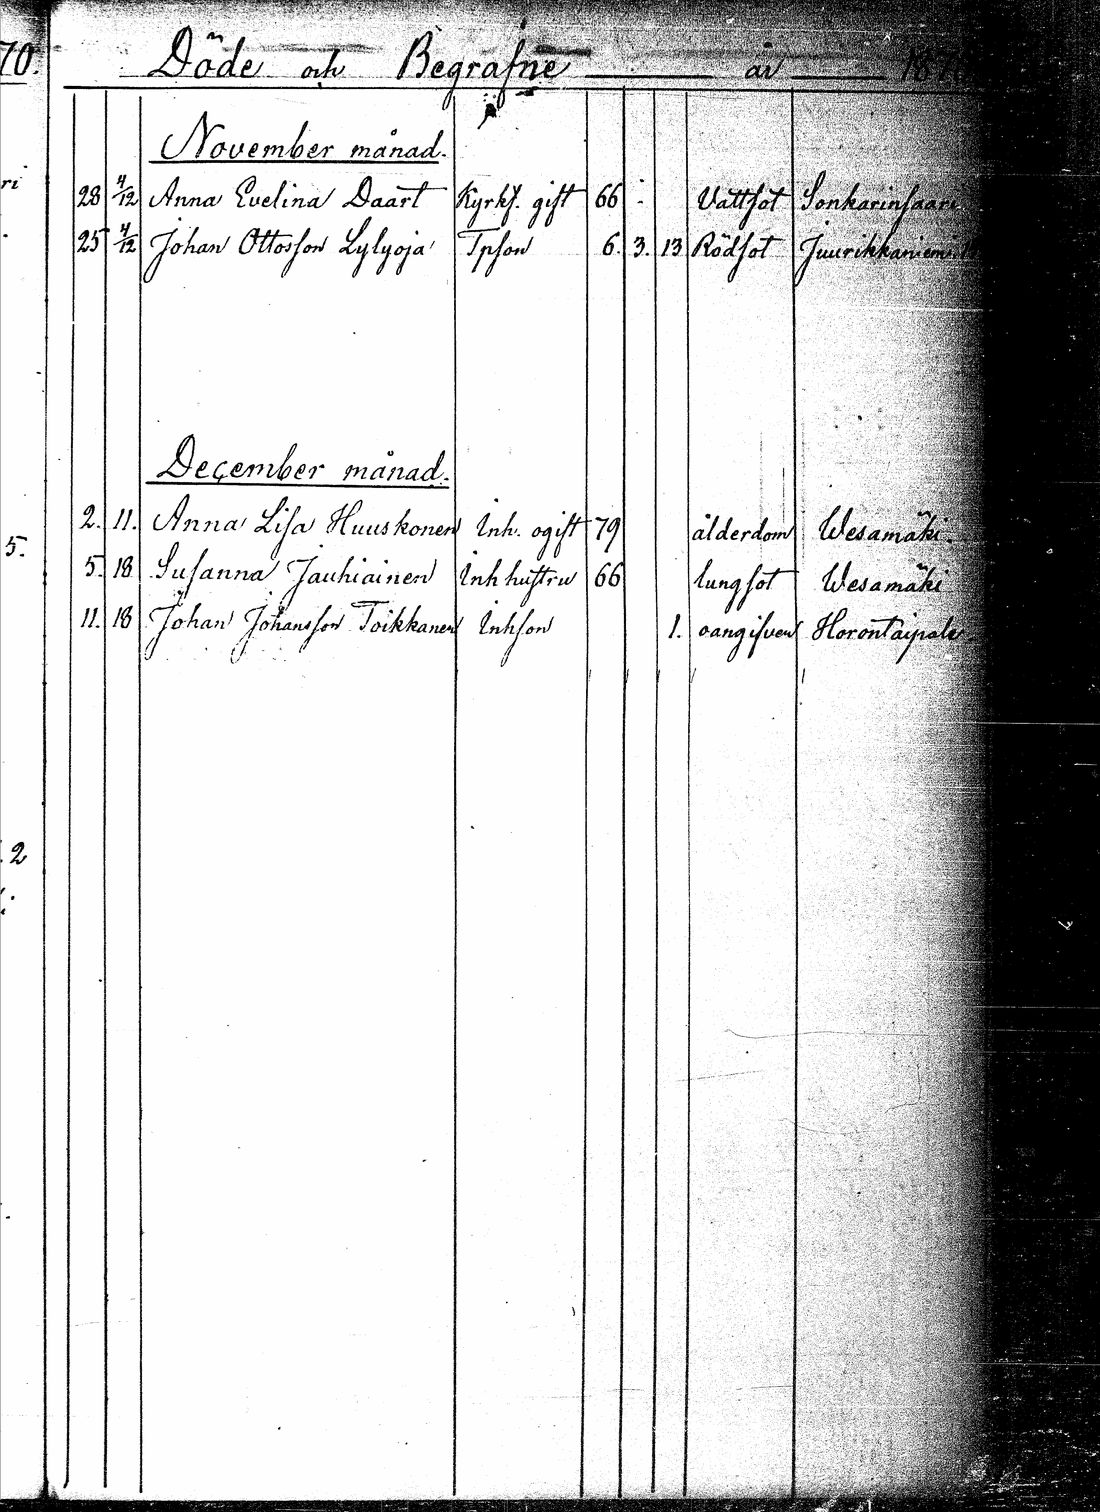 70. Döde och Begrafne år 187
November månad.
28 4/12 Anna Evelina Daart Kyrkf. gift 66 - Vattsot Sonkarinsaari
25 4/12 Johan Ottosson Lylyoja Tpson 6. 3. 13 Rödsot Juurikkaniemi
December månad.
2. 11. Anna Lisa Huuskonen Inh. ogift 79 ålderdom Wesamäki.
5. 18 Susanna Jauhiainen Inh hustru 66 lungsot Wesamäki
11. 18 Johan Johansson Toikkanen Inhson 1. oangifven Horontaipale
ri
5.
.2